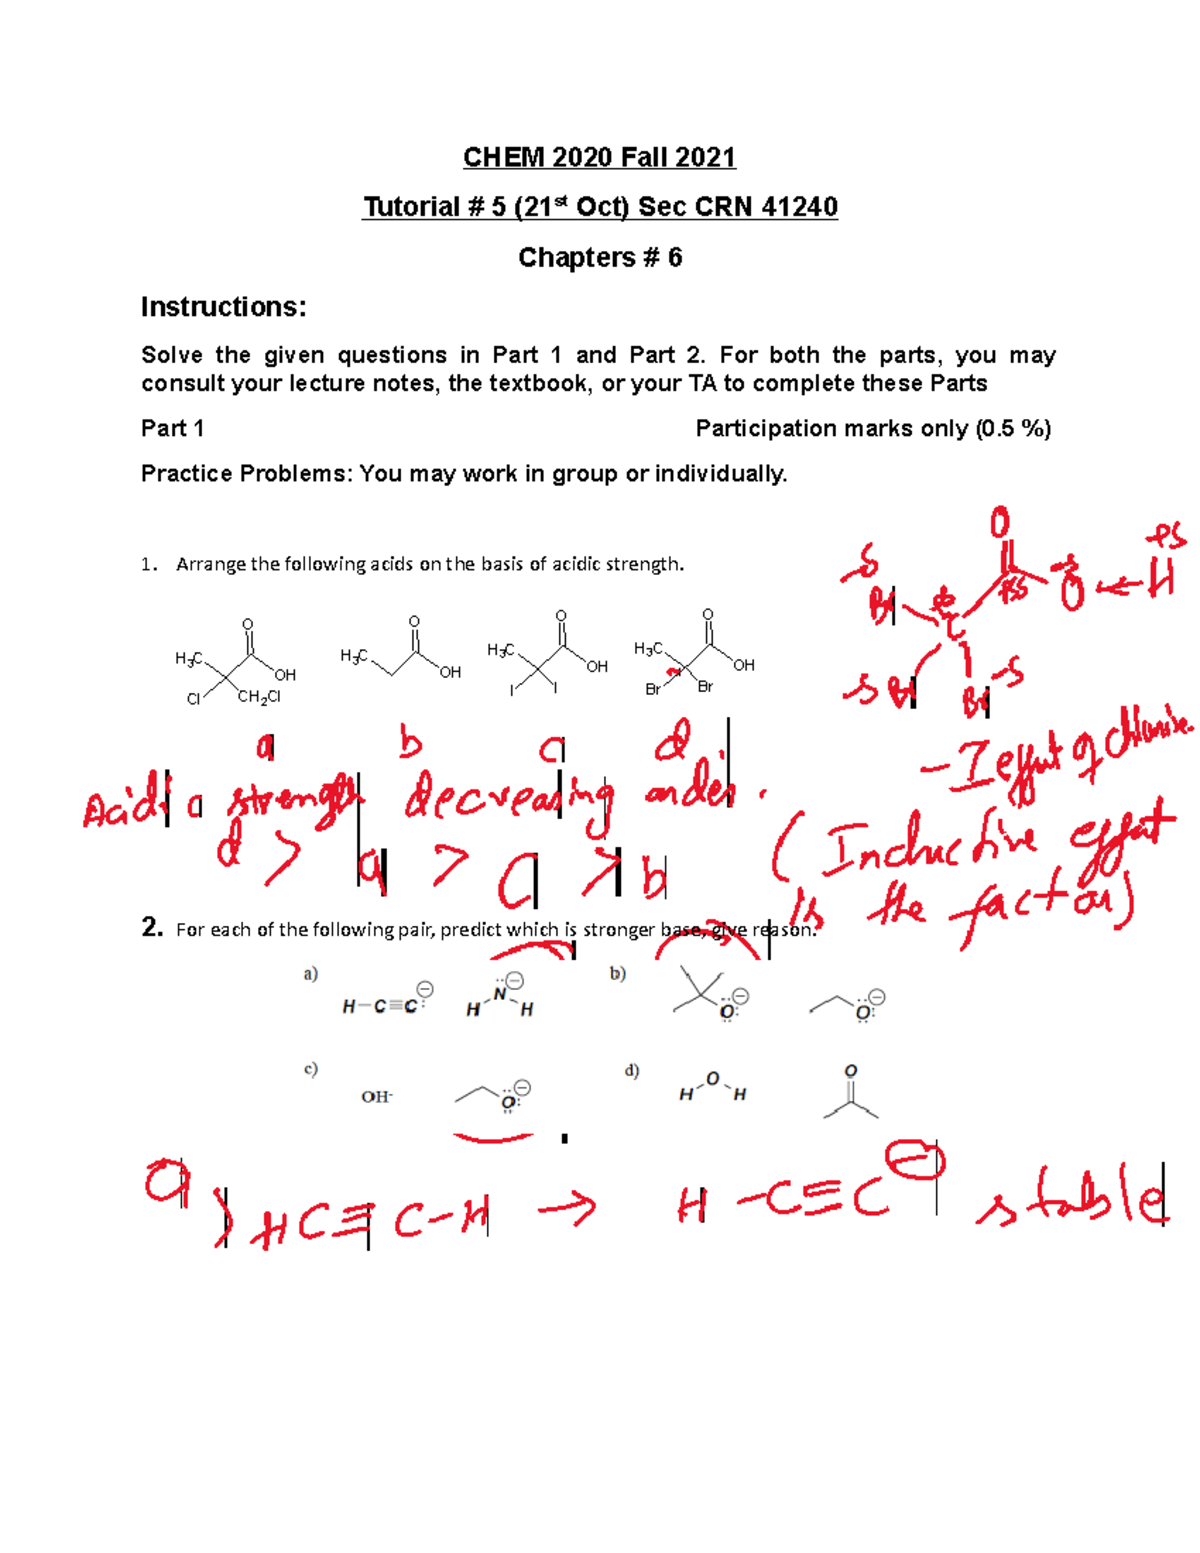 CHEM 2020 Fall 2021
Tutorial # 5 (21st Oct) Sec CRN 41240
Chapters # 6
Instructions:
Solve the given questions in Part 1 and Part 2. For both the parts, you may
consult your lecture notes, the textbook, or your TA to complete these Parts
Part 1 Participation marks only (0.5 %)
Practice Problems: You may work in group or individually.
1. Arrange the following acids on the basis of acidic strength.
O
H3C OH
Cl CH2Cl
O
H3C OH
O
H3C OH
I I
O
H3C OH
Br Br
O
Br C H
Br Br
a b c d
- I effect of chlorine.
Acidic strength decreasing order.
d > a > c > b
( Inductive effect
is the factor)
2. For each of the following pair, predict which is stronger base, give reason.
a) H-C≡C:⊖ H N H ⊖
b) O ⊖ O ⊖
c) OH- O ⊖
d) H O H O
a) HC≡C-H → H-C≡C⊖ stable